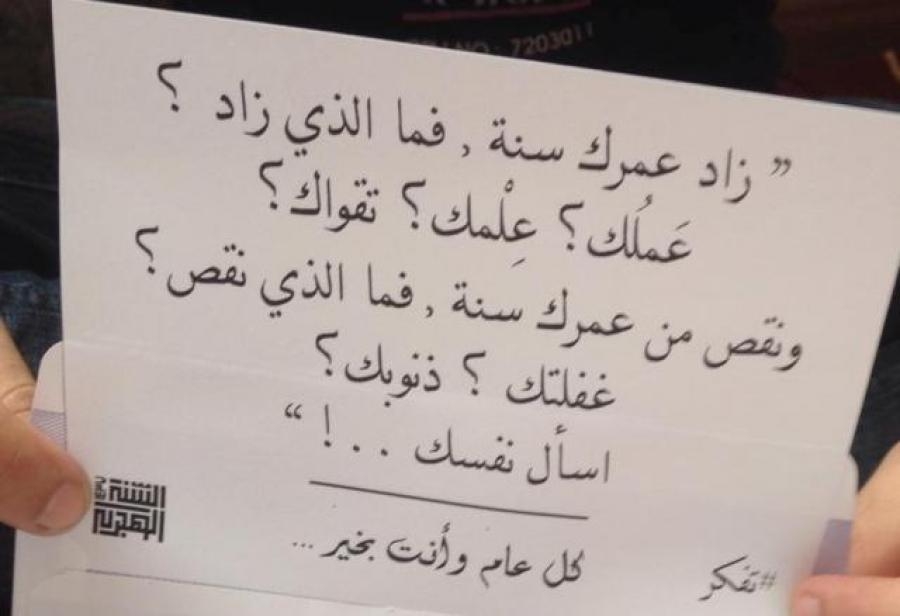 NO: 7203011
” زاد عمرك سنة , فما الذي زاد ؟
عَملُك؟ عِلْمك؟ تقواك؟
ونقص من عمرك سنة , فما الذي نقص؟
غفلتك ؟ ذنوبك؟
اسأل نفسك . . ! “
كل عام وأنت بخير ...
#تفكر
السنة
الهجرية